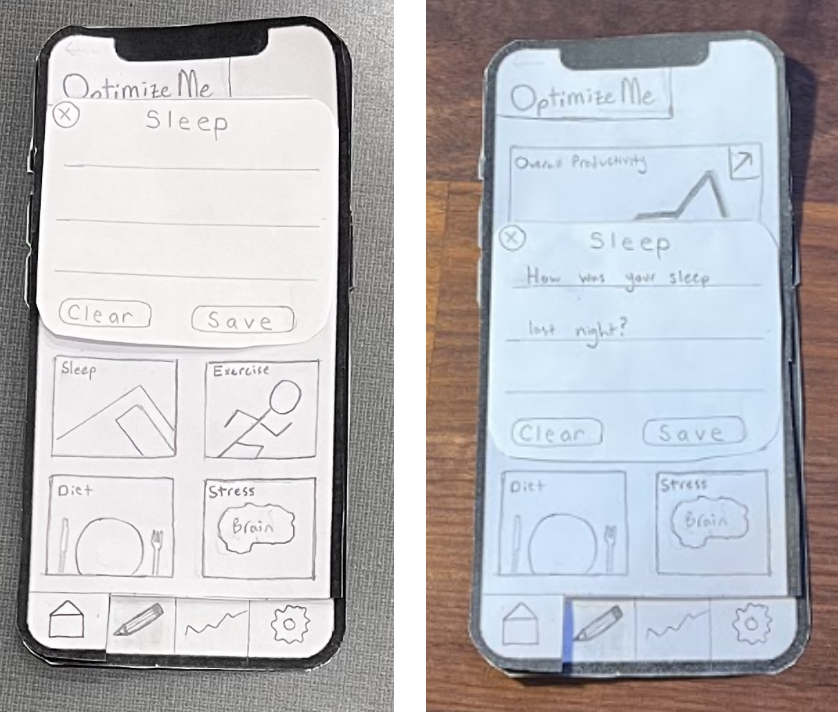 Optimize Me
Sleep
Clear
Save
Sleep
Exercise
Diet
Stress
Brain
Optimize Me
Overall Productivity
Sleep
How was your sleep
last night?
Clear
Save
Diet
Stress
Brain